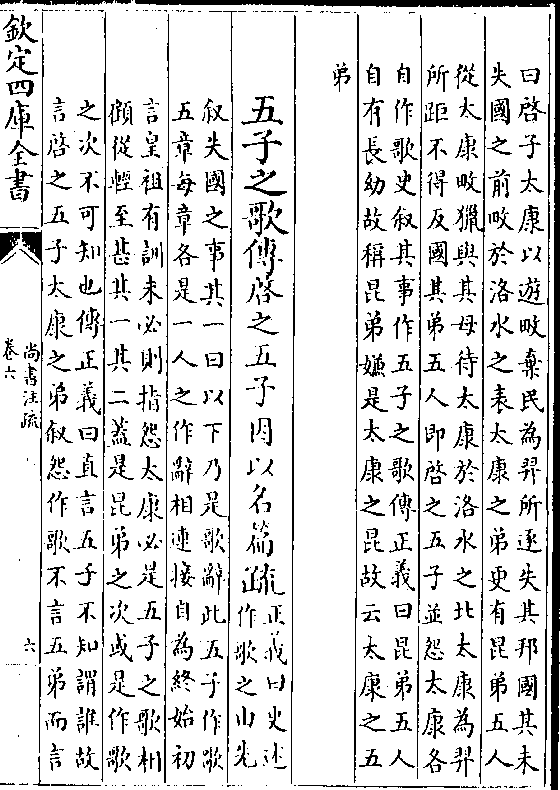 曰啓子太康以遊畋棄民為羿所逐失其邦國其未
失國之前畋於洛水之表太康之弟更有昆弟五人
從太康畋獵與其母待太康於洛水之北太康為羿
所距不得反國其弟五人即啓之五子並怨太康各
自作歌史叙其事作五子之歌傳正義曰昆弟五人
自有長幼故稱昆弟嫌是太康之昆故云太康之五
弟
五子之歌傳啓之五子因以名篇疏
正義曰史述
作歌之由先
叙失國之事其一曰以下乃是歌辭此五子作歌
五章每章各是一人之作辭相連接自為終始初
言皇祖有訓未必則指怨太康必是五子之歌相
顧從輕至甚其一其二蓋是昆弟之次或是作歌
之次不可知也傳正義曰直言五子不知謂誰故
言啓之五子太康之弟叙怨作歌不言五弟而言
欽定四庫全書
尚書注疏
卷六
六